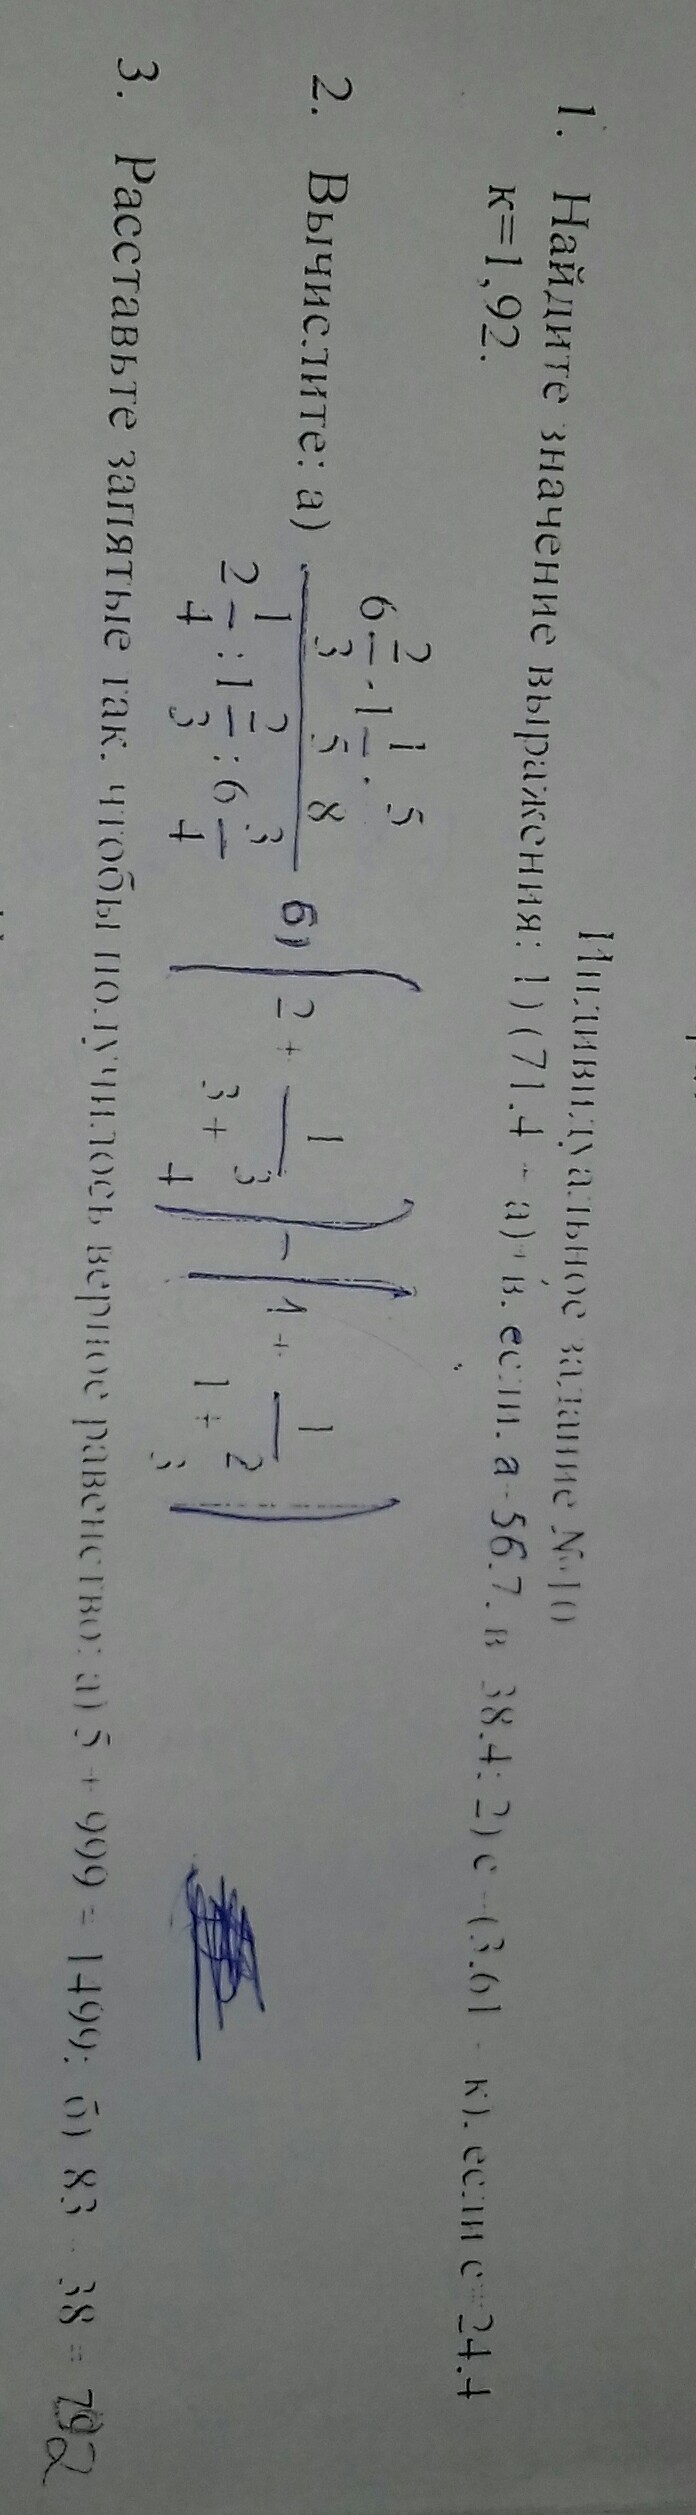 Индивидуальное задание №10
1. Найдите значение выражения: 1) (71.4 - а)+ в. если. а=56.7. в=38.4: 2) с -(3.61 - к). если с=24.4
к=1,92.
2. Вычислите: а) (6 2/3 · 1 1/5 · 5/8) / (2 1/4 : 1 2/3 : 6 3/4) б) (2 + 1/(3 + 3/4)) - (1 + 1/(1 + 2/3))
3. Расставьте запятые так. чтобы получилось верное равенство: а) 5 + 999 = 1499: б) 83 - 38 = 792